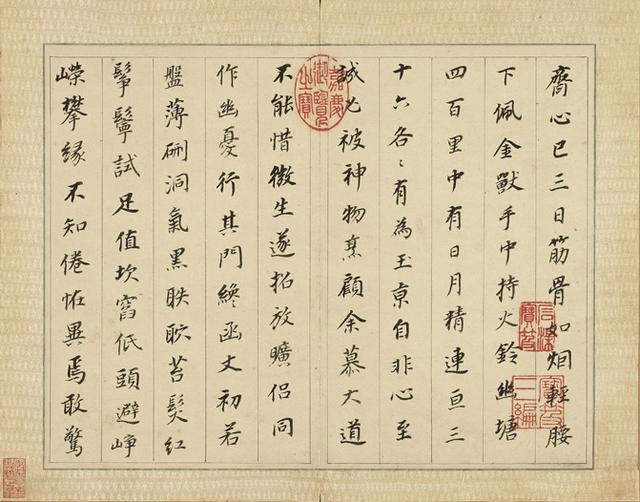 齋心已三日筋骨如烟輕腰
下佩金獸手中持火鈴幽塘
四百里中有日月精連亘三
十六各〻有為玉京自非心至
誠必被神物烹顧余慕大道
不能惜微生遂招放曠侶同
作幽憂行其門纔函丈初若
盤薄硎洞氣黑眣眡苔髮紅
鬇鬡試足值坎窞低頭避崢
嶸攀緣不知倦恠異焉敢驚
嘉慶御覽之寶
石渠寶笈
寶笈三編